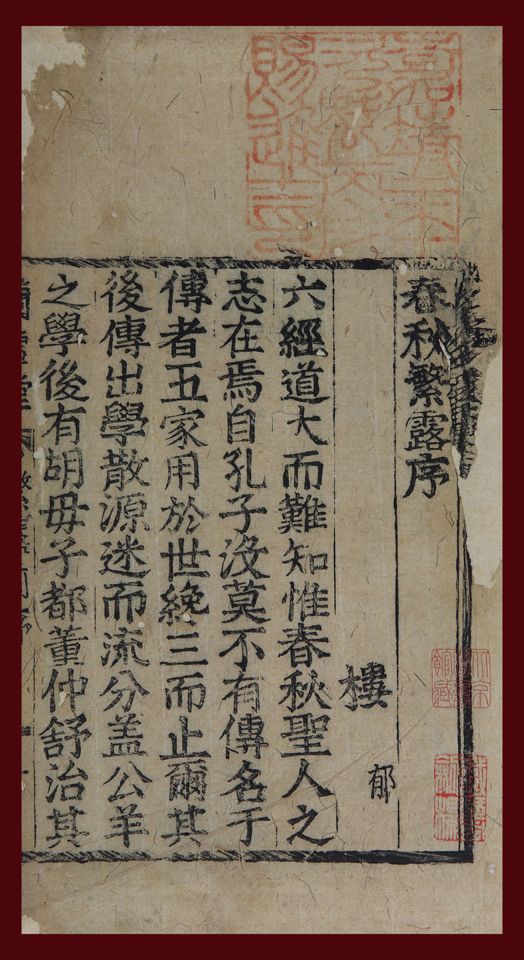 春秋繁露序
樓 郁
六經道大而難知惟春秋聖人之
志在焉自孔子沒莫不有傳名于
傳者五家用於世纔三而止爾其
後傳出學散源迷而流分盖公羊
之學後有胡毋子都董仲舒治其